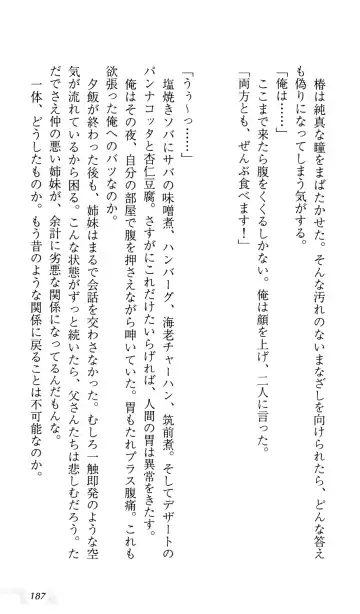 椿は純真な瞳をまばたかせた。そんな汚れのないまなざしを向けられたら、どんな答え
も偽りになってしまう気がする。
「俺は……」
　ここまで来たら腹をくくるしかない。俺は顔を上げ、二人に言った。
「両方とも、ぜんぶ食べます！」
「うぅ〜っ……」
　塩焼きソバにサバの味噌煮、ハンバーグ、海老チャーハン、筑前煮。そしてデザートの
パンナコッタと杏仁豆腐。さすがにこれだけたいらげれば、人間の胃は異常をきたす。
　俺はその夜、自分の部屋で腹を押さえながら呻いていた。胃もたれプラス腹痛。これも
欲張った俺へのバツなのか。
　夕飯が終わった後も、姉妹はまるで会話を交わさなかった。むしろ一触即発のような空
気が流れているから困る。こんな状態がずっと続いたら、父さんたちは悲しむだろう。た
だでさえ仲の悪い姉妹が、余計に劣悪な関係になってるんだもんな。
　一体、どうしたものか。もう昔のような関係に戻ることは不可能なのか。
187